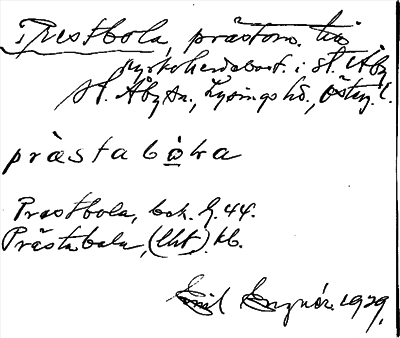 Prestbola, prästom.
kyrkoherdebost. i St. Åby
St. Åby sn, Lysings hd, Östg. l.
prästabo̲la
Prestbola, bok. J. 44.
Prästabola, (Uht). kb.
Emil 1929.